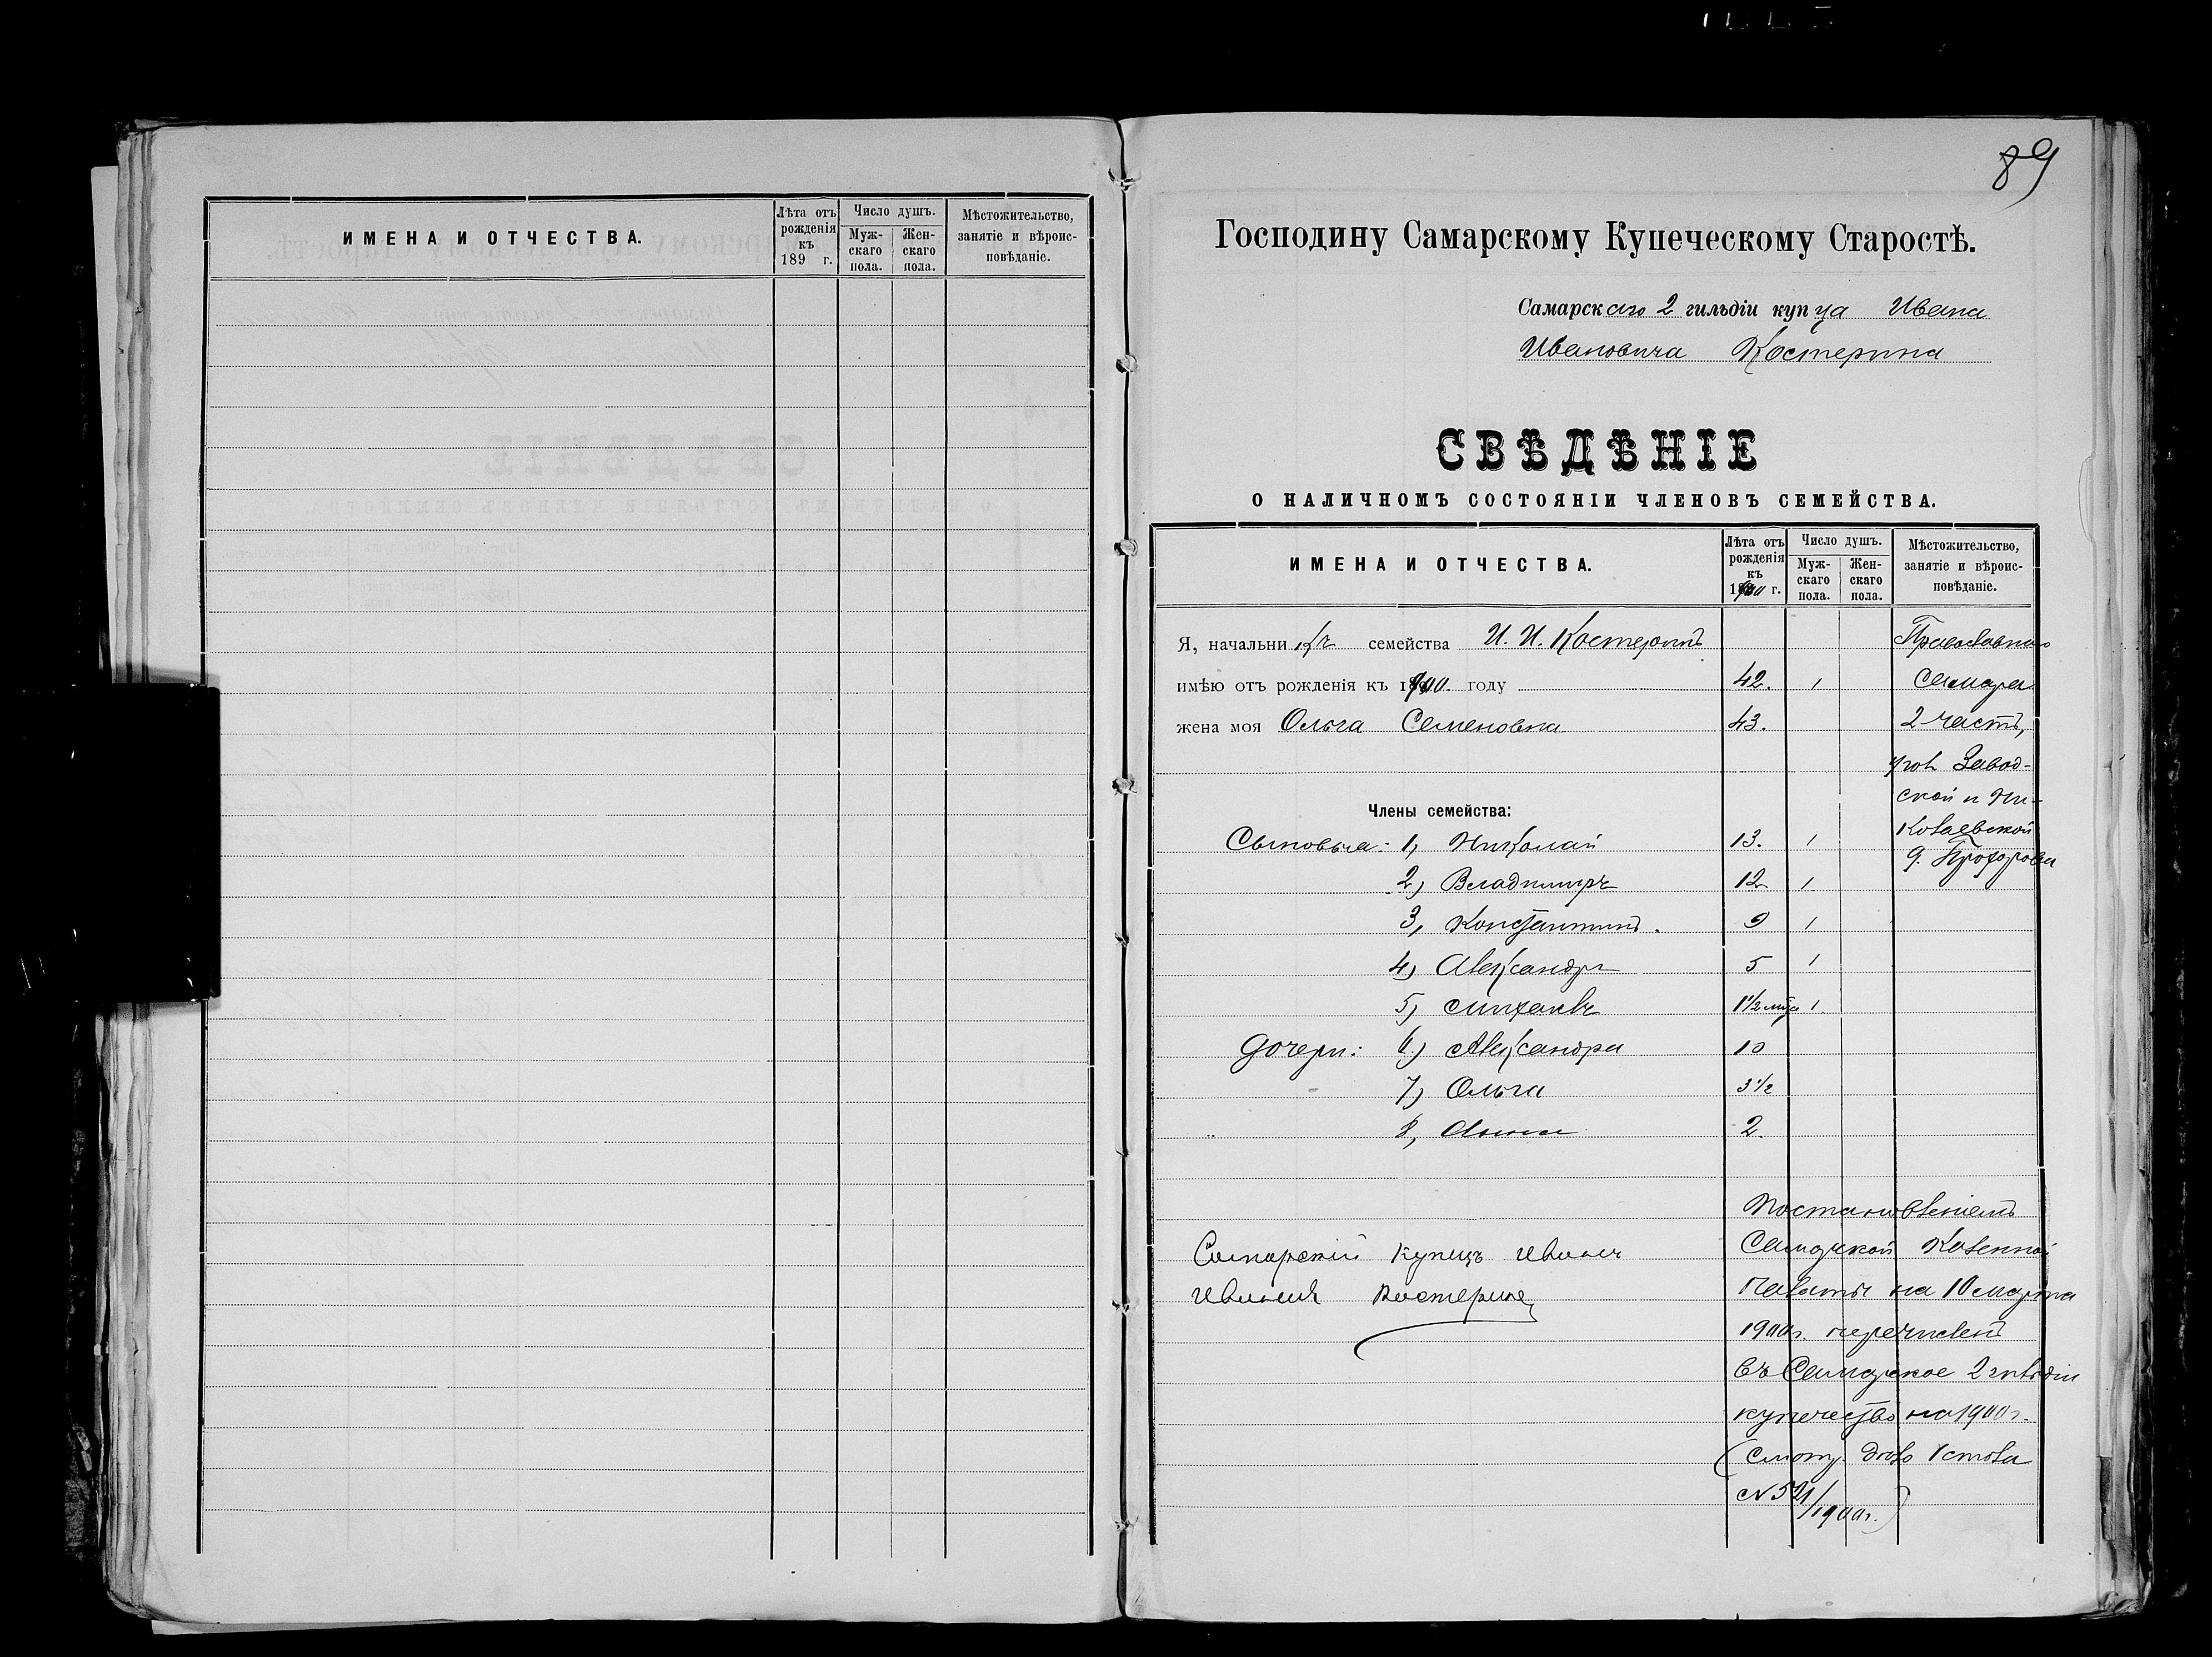 ИМЕНА И ОТЧЕСТВА.
Лѣта отъ рожденія къ 189 г.
Число душъ.
Муж-скаго пола.
Жен-скаго пола.
Мѣстожительство, занятіе и вѣроис-повѣданіе.
89
Господину Самарскому Купеческому Старостѣ.
Самарскаго 2 гильдіи купца Ивана
Ивановича Костерина
СВѢДѢНІЕ
О НАЛИЧНОМЪ СОСТОЯНІИ ЧЛЕНОВЪ СЕМЕЙСТВА.
ИМЕНА И ОТЧЕСТВА.
Лѣта отъ рожденія къ 1900 г.
Число душъ.
Муж-скаго пола.
Жен-скаго пола.
Мѣстожительство, занятіе и вѣроис-повѣданіе.
Я, начальникъ семейства И. И. Костеринъ Православнаго
имѣю отъ рожденія къ 1900. году 42. 1 Самара
жена моя Ольга Семеновна 43. 2 часть,
угол Завод-
ской и Ни-
Члены семейства:
колаевской
Сыновья: 1, Николай 13. 1
д. Прохорова
2) Владимиръ 12 1.
3, Константинъ. 9 1
4) Александръ 5 1
5) Михаилъ 1 1/2 мѣс 1.
Дочери: 6.) Александра 10
7) Ольга 3 1/2
" 8, Анна 2.
Постановленіемъ
Самарской Казенной
Палаты на 10 марта
1900г. перечисленъ
въ Самарское 2 гильдіи
купечество на 1900г.
(Смотр. дѣло 1 стола
№ 521/1900г.)
Самарскій Купецъ Иванъ
Ивановъ Костеринъ